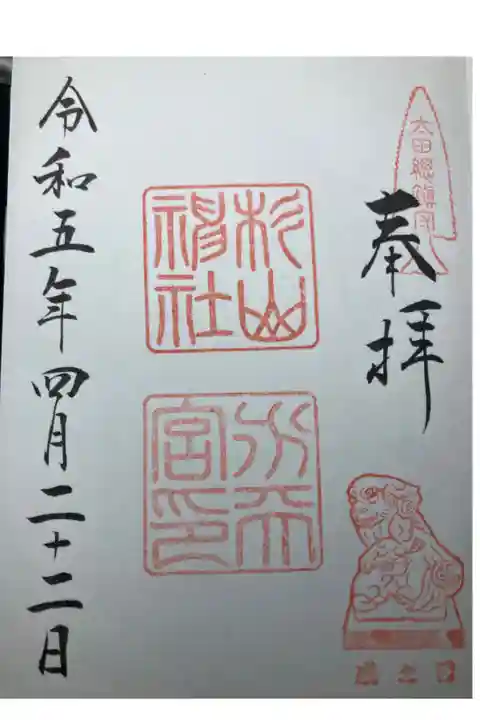 太田總鎮守
奉拝
杉山
神社
水天
宮印
令和五年四月二十二日